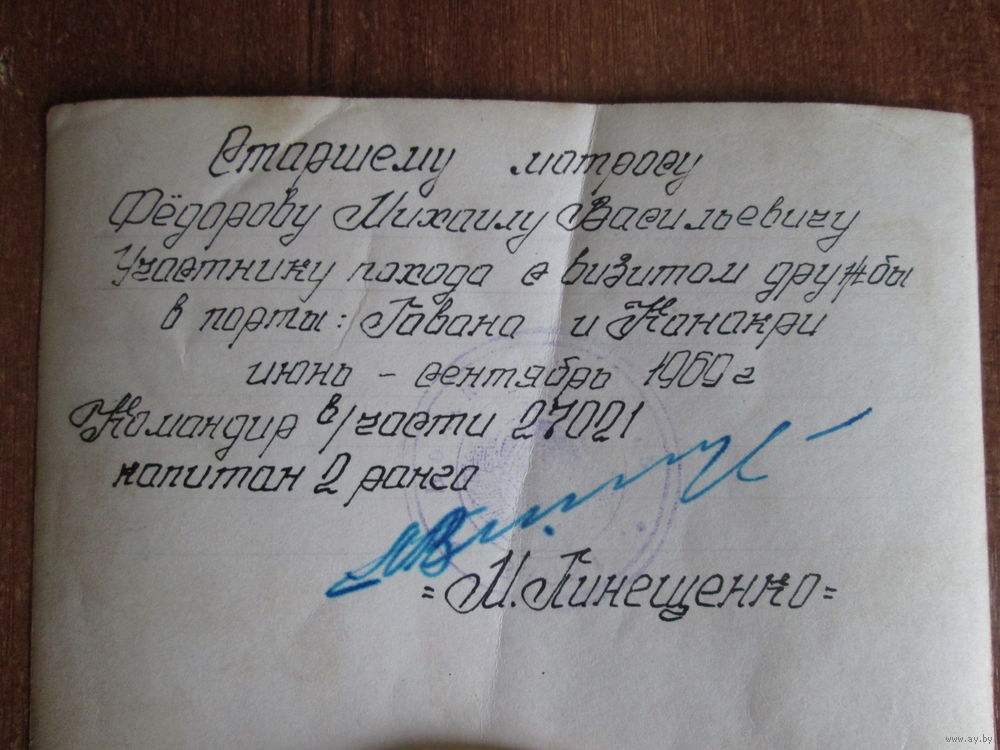 Старшему матросу
Фёдорову Михаилу Васильевичу
Участнику похода с визитом дружбы
в порты: Гавана и Канакри
июнь - сентябрь 1969 г
Командир в/части 27021
капитан 2 ранга
= М. Линещенко =
www.ay.by